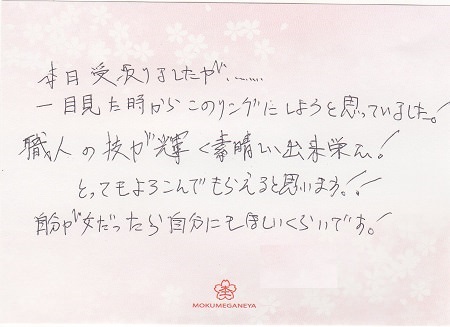 本日受取りましたが、……
一目見た時からこのリングにしようと思っていました!
職人の技が輝く素晴しい出来栄え!
とってもよろこんでもらえると思います!!
自分が女だったら自分にもほしいくらいです!
MOKUMEGANEYA